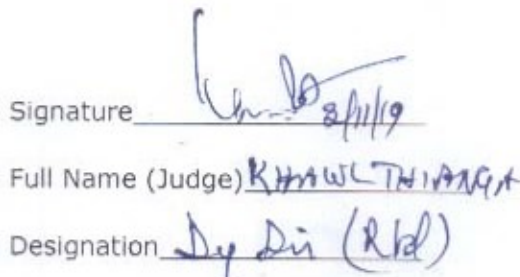 Signature 8/11/19
Full Name (Judge) KHAWLTHIANGA
Designation Dy Dir (Rtd)